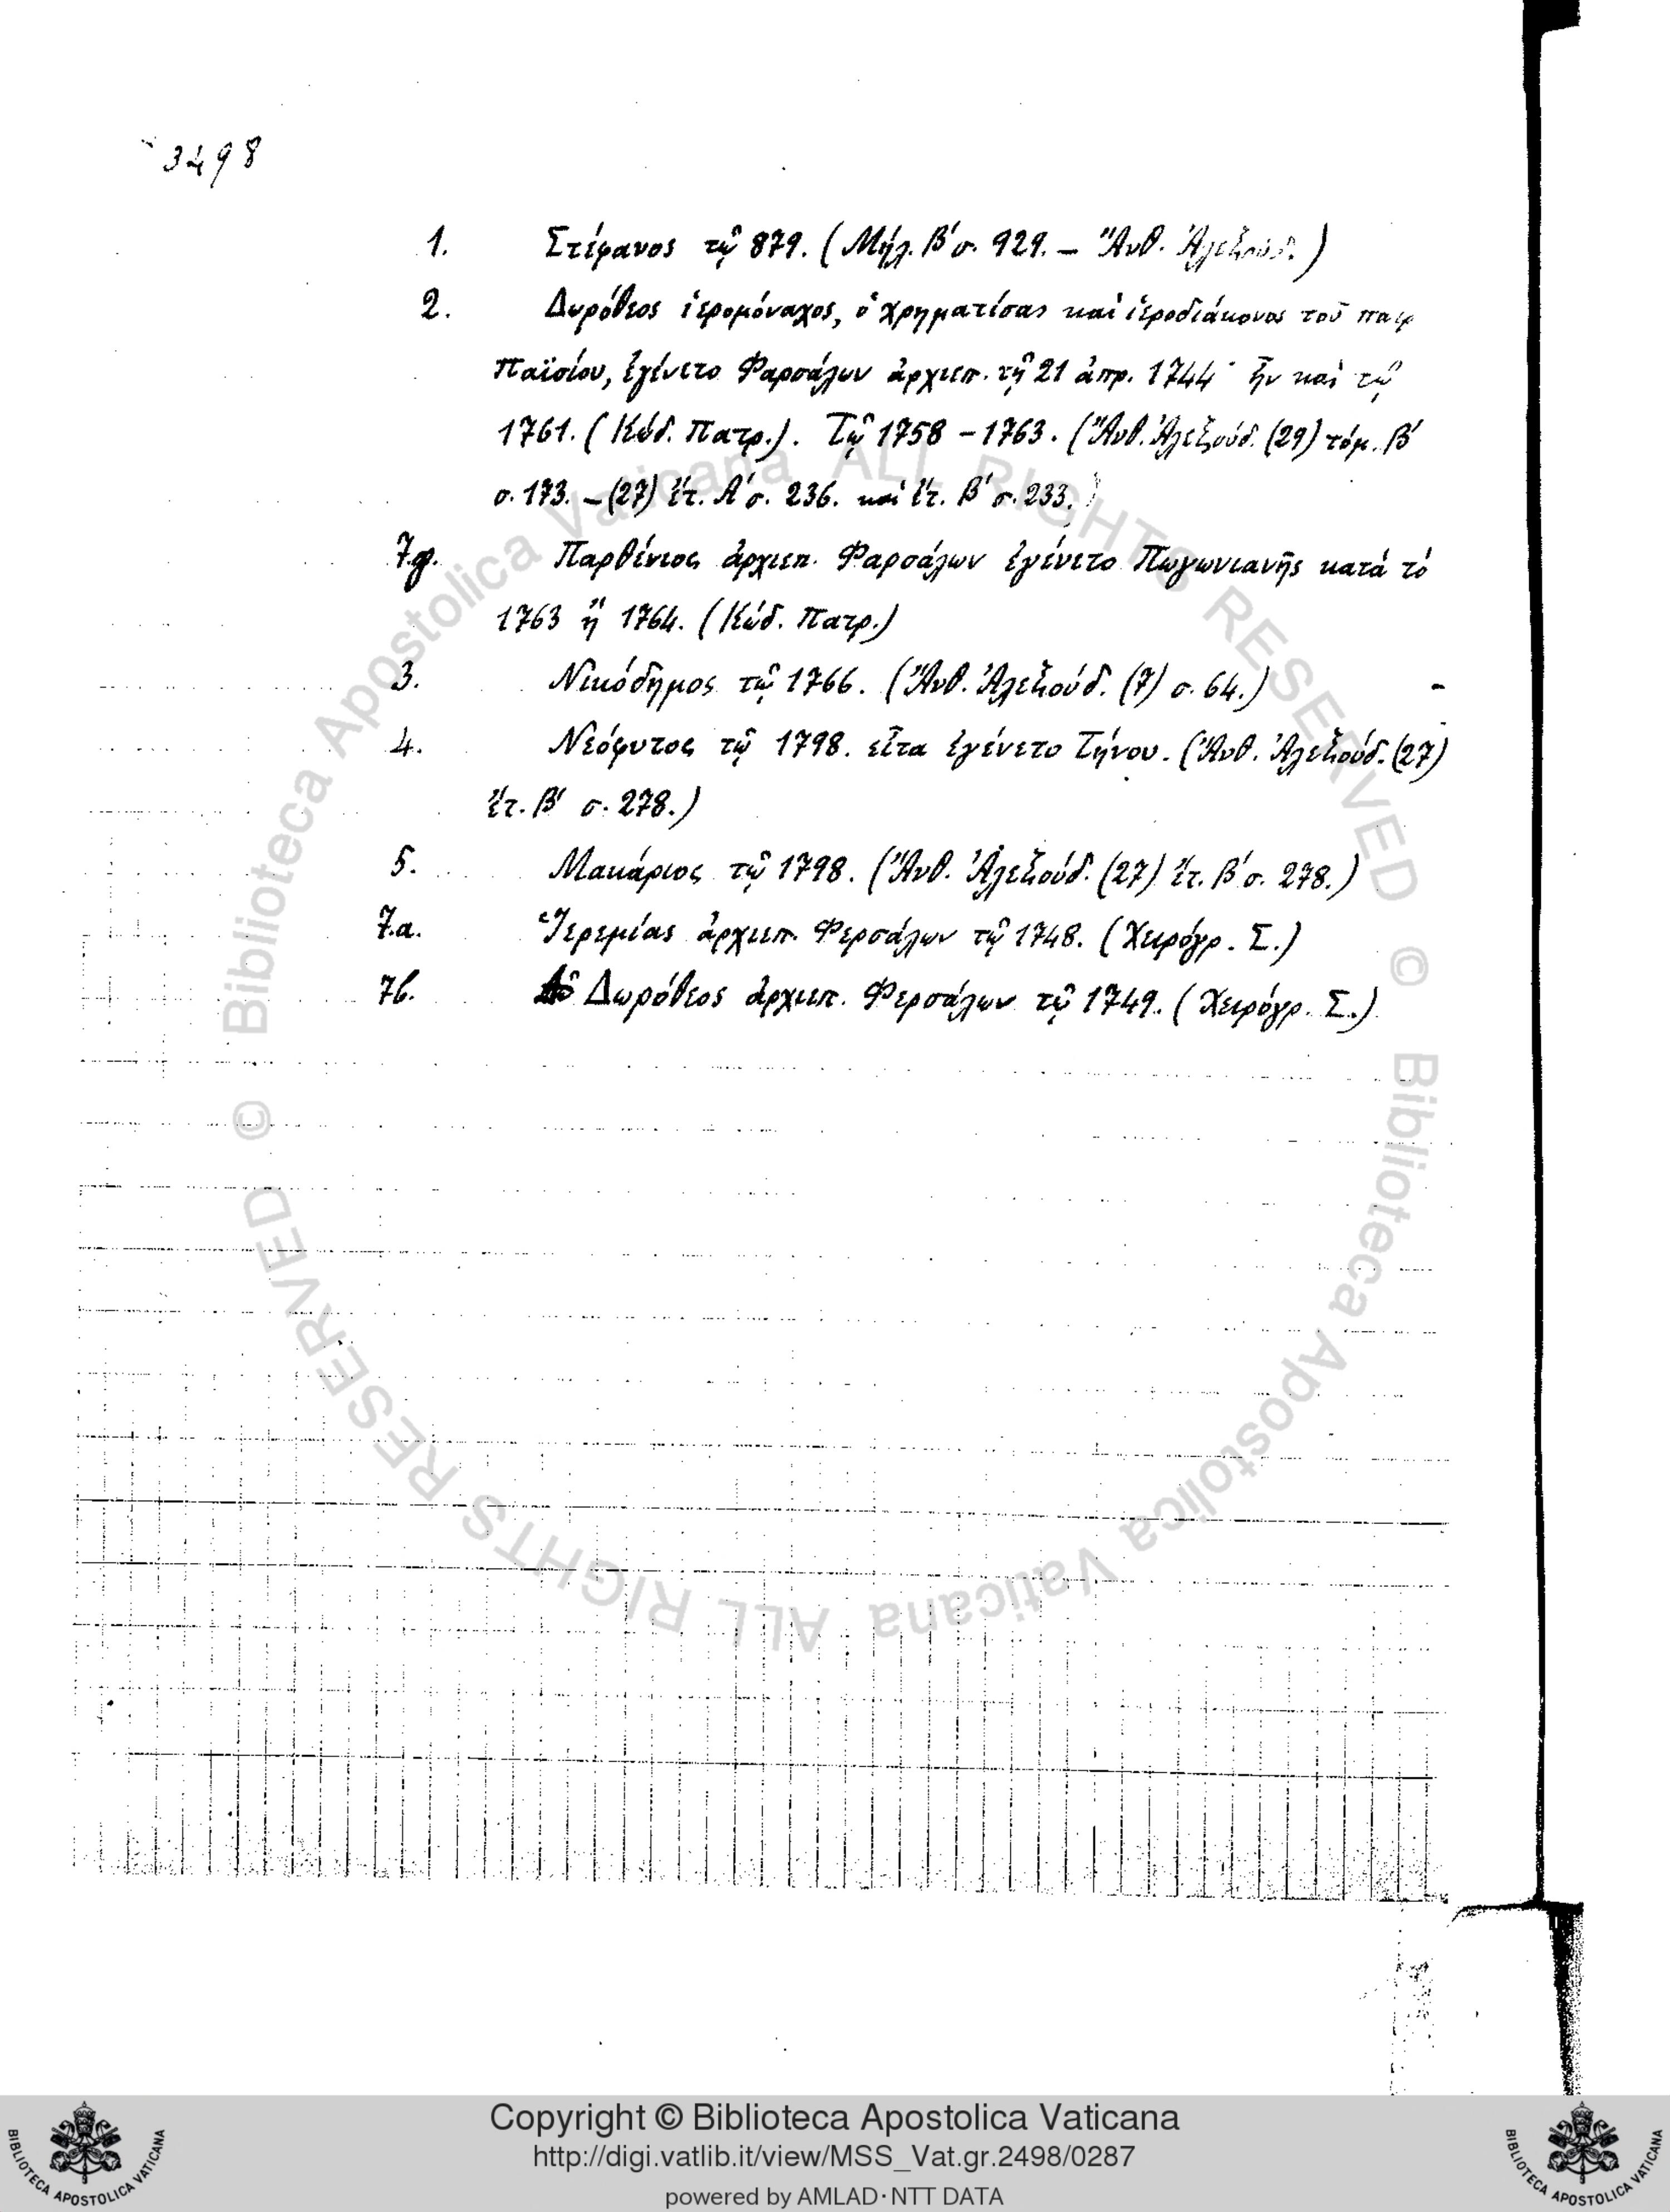 3498
1. Στέφανος τῷ 879. (Μήλ. Β΄ σ. 929. – Ἄνθ. Ἀλεξούδ.)
2. Δωρόθεος ἱερομόναχος, ὁ χρηματίσας καὶ ἱεροδιάκονος τοῦ
Παϊσίου, ἐγένετο Φαρσάλων ἀρχιεπ. τῇ 21 ἀπρ. 1744· ἦν καὶ τῷ
1761. (Κώδ. Πατρ.). Τῷ 1758 – 1763. (Ἄνθ. Ἀλεξούδ. (29) τόμ. Β΄
σ. 173. – (27) ἔτ. Α΄ σ. 236. καὶ ἔτ. Β΄ σ. 233.)
7.g. Παρθένιος ἀρχιεπ. Φαρσάλων ἐγένετο Πωγωνιανῆς κατὰ τὸ
1763 ἢ 1764. (Κώδ. Πατρ.)
3. Νικόδημος τῷ 1766. (Ἄνθ. Ἀλεξούδ. (7) σ. 64.)
4. Νεόφυτος τῷ 1798. εἶτα ἐγένετο Τήνου. (Ἄνθ. Ἀλεξούδ. (27)
ἔτ. Β΄ σ. 278.)
5. Μακάριος τῷ 1798. (Ἄνθ. Ἀλεξούδ. (27) ἔτ. Β΄ σ. 278.)
7.a. Ἱερεμίας ἀρχιεπ. Φερσάλων τῷ 1748. (Χειρόγρ. Σ.)
7b. Δωρόθεος ἀρχιεπ. Φερσάλων τῷ 1749. (Χειρόγρ. Σ.)
© Biblioteca Apostolica Vaticana ALL RIGHTS RESERVED
© Biblioteca Apostolica Vaticana ALL RIGHTS RESERVED
BIBLIOTECA APOSTOLICA VATICANA
Copyright © Biblioteca Apostolica Vaticana
http://digi.vatlib.it/view/MSS_Vat.gr.2498/0287
powered by AMLAD·NTT DATA
BIBLIOTECA APOSTOLICA VATICANA